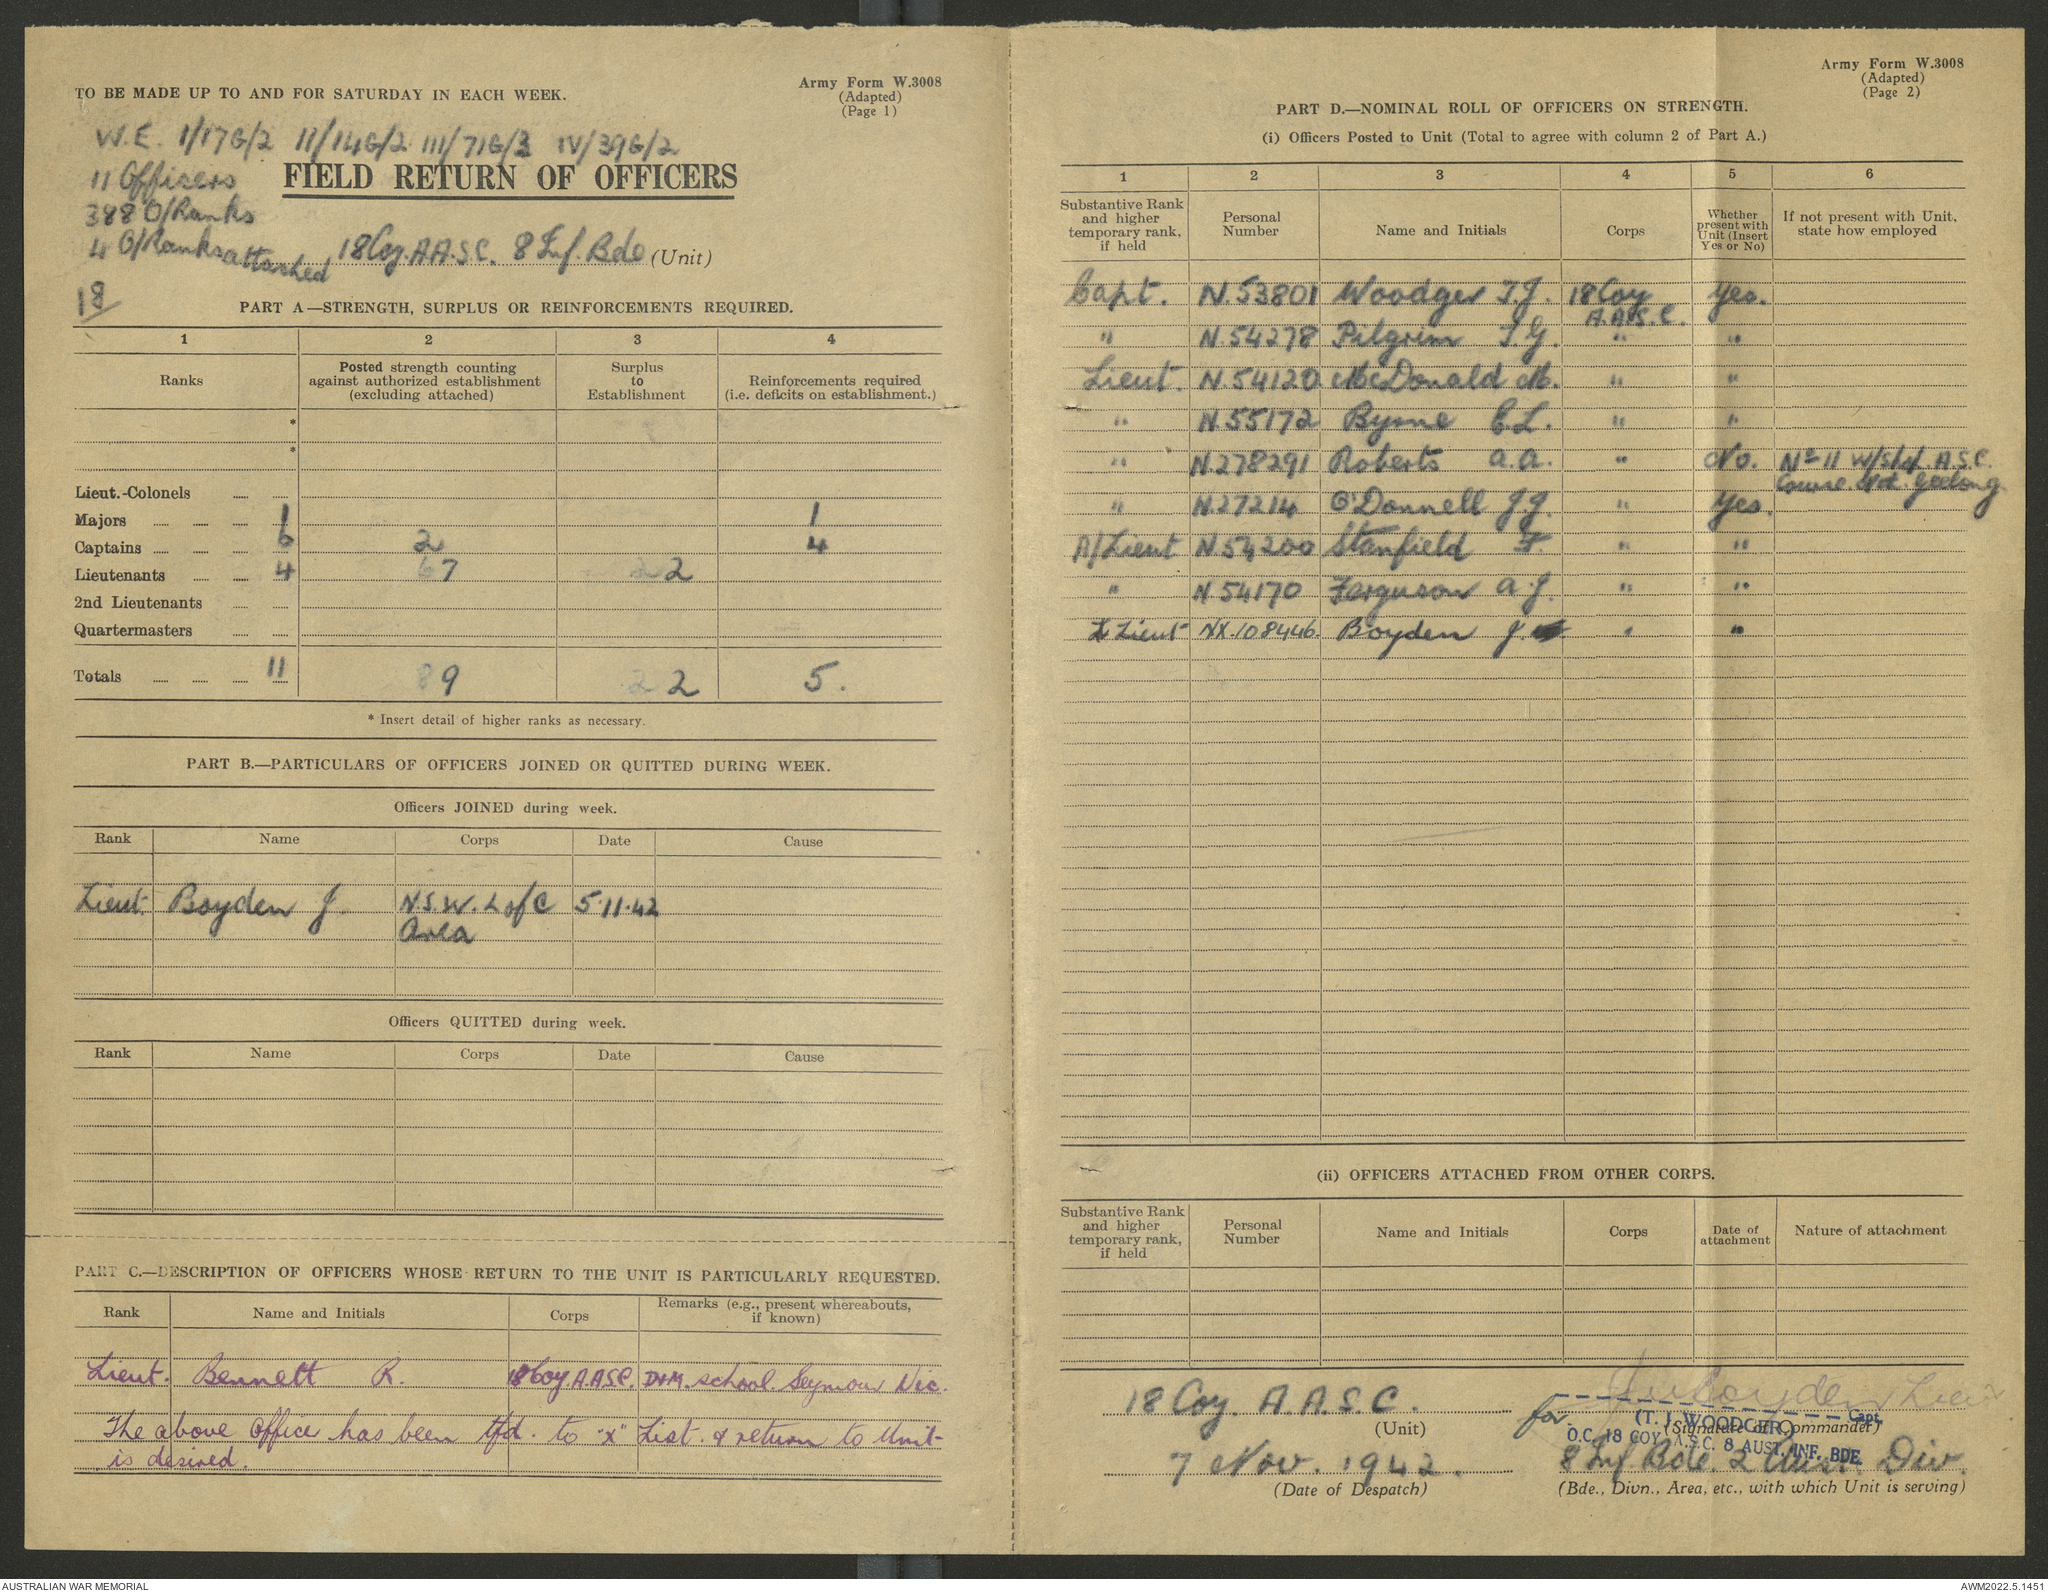 TO BE MADE UP TO AND FOR SATURDAY IN EACH WEEK.
Army Form W.3008
(Adapted)
(Page 1)
W.E. I/17G/2 II/14G/2 III/71G/3 IV/39G/2
11 Officers
388 O/Ranks
4 O/Ranks attached
18
FIELD RETURN OF OFFICERS
18 Coy. A.A.S.C. 8 Inf. Bde (Unit)
PART A—STRENGTH, SURPLUS OR REINFORCEMENTS REQUIRED.
1 2 3 4
Ranks
Posted strength counting against authorized establishment (excluding attached)
Surplus to Establishment
Reinforcements required (i.e. deficits on establishment.)
*
*
Lieut.-Colonels
Majors 1 1
Captains 6 2 4
Lieutenants 4 7 2
2nd Lieutenants
Quartermasters
Totals 11 9 2 5.
* Insert detail of higher ranks as necessary.
PART B.—PARTICULARS OF OFFICERS JOINED OR QUITTED DURING WEEK.
Officers JOINED during week.
Rank Name Corps Date Cause
Lieut. Boyden J. N.S.W. L of C 5.11.42
Area
Officers QUITTED during week.
Rank Name Corps Date Cause
PART C.—DESCRIPTION OF OFFICERS WHOSE RETURN TO THE UNIT IS PARTICULARLY REQUESTED.
Rank Name and Initials Corps Remarks (e.g., present whereabouts, if known)
Lieut. Bennett R. 18 Coy. A.A.S.C. D&M. School. Seymour Vic.
The above office has been tfd. to "X" List. & return to Unit
is desired.
Army Form W.3008
(Adapted)
(Page 2)
PART D.—NOMINAL ROLL OF OFFICERS ON STRENGTH.
(i) Officers Posted to Unit (Total to agree with column 2 of Part A.)
1 2 3 4 5 6
Substantive Rank and higher temporary rank, if held
Personal Number
Name and Initials
Corps
Whether present with Unit (Insert Yes or No)
If not present with Unit, state how employed
Capt. N.53801 Woodger T.J. 18 Coy A.A.S.C. Yes.
" N.54278 Pilgrim T.G. " "
Lieut. N.54120 McDonald M. " "
" N.55172 Byrne C.L. " "
" N.278291 Roberts A.A. " No. No 11 W/S/Lt. A.S.C.
Course Geelong
" N.27214 O'Donnell J.J. " Yes.
A/Lieut N.54200 Stanfield F. " "
" N.54170 Ferguson A.J. " "
Lieut NX.108446. Boyden J. " "
(ii) OFFICERS ATTACHED FROM OTHER CORPS.
Substantive Rank and higher temporary rank, if held
Personal Number
Name and Initials
Corps
Date of attachment
Nature of attachment
18 Coy. A.A.S.C.
(Unit)
7 Nov. 1942.
(Date of Despatch)
for J Boyden Lieut
(T. J. WOODGER) Capt.
(Signature of Commander)
O.C. 18 COY. A.A.S.C. 8 AUST. INF. BDE.
8 Inf Bde. 2 Aust. Div.
(Bde., Divn., Area, etc., with which Unit is serving)
AUSTRALIAN WAR MEMORIAL
AWM2022.5.1451